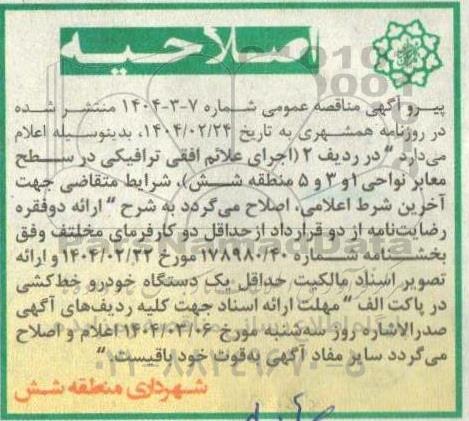 اصلاحیه
پیرو آگهی مناقصه عمومی شماره ۷-۳-۱۴۰۴ منتشر شده
در روزنامه همشهری به تاریخ ۱۴۰۴/۰۲/۲۴، بدینوسیله اعلام
می‌دارد " در ردیف ۲ (اجرای علائم افقی ترافیکی در سطح
معابر نواحی ۱و ۳ و ۵ منطقه شش)، شرایط متقاضی جهت
آخرین شرط اعلامی، اصلاح می‌گردد به شرح " ارائه دوفقره
رضایت‌نامه از دو قرارداد ازحداقل دو کارفرمای مختلتف وفق
بخشنامه شماره ۱۷۸۹۸۰/۴۰ مورخ ۱۴۰۴/۰۲/۲۲ و ارائه
تصویر اسناد مالکیت حداقل یک دستگاه خودرو خط‌کشی
در پاکت الف " مهلت ارائه اسناد جهت کلیه ردیف‌های آگهی
صدرالاشاره روز سه‌شنبه مورخ ۱۴۰۴/۰۳/۰۶ اعلام و اصلاح
می‌گردد سایر مفاد آگهی به‌قوت خود باقیست. "
شهرداری منطقه شش